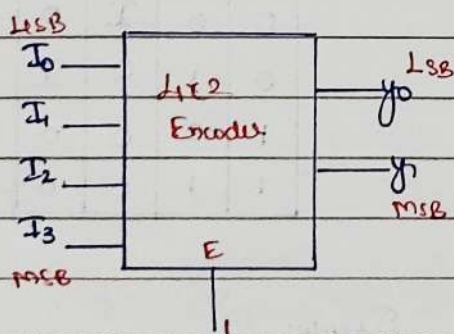 LSB
I0
I1
I2
I3
MSB
4x2
Encoder
E
1
LSB
y0
y1
MSB